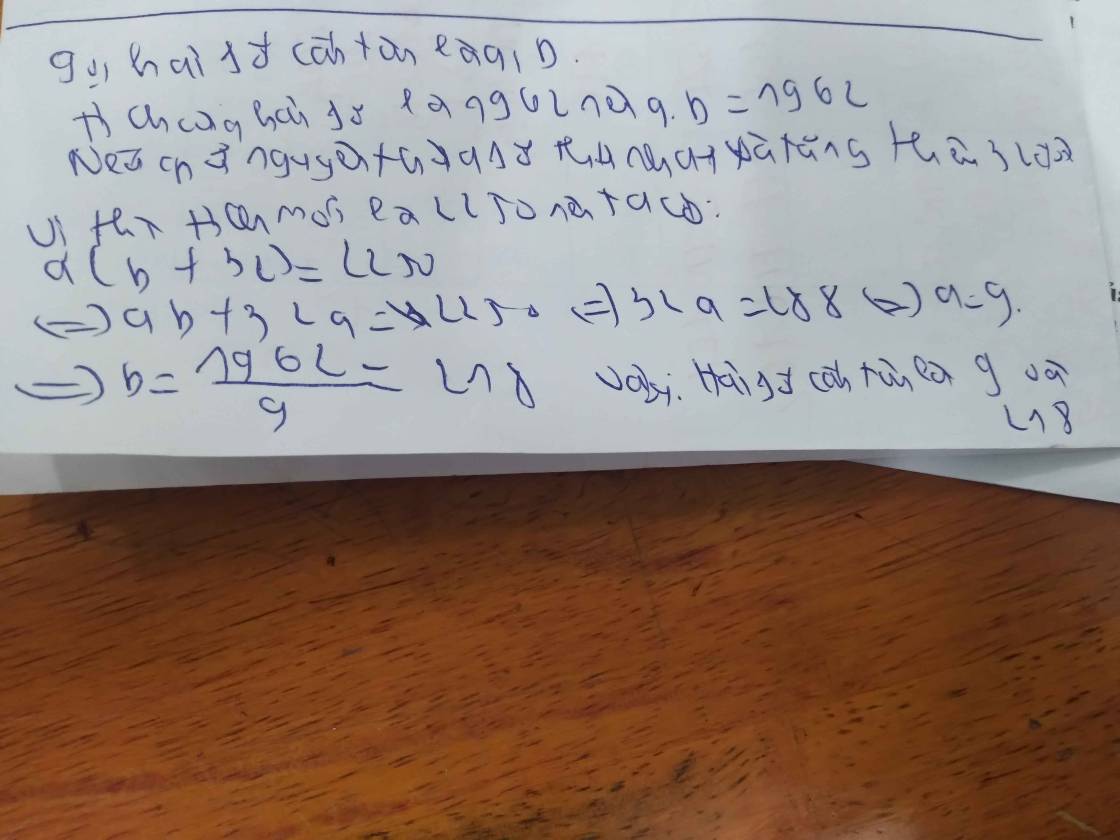 Gọi hai số cần tìm là a, b.
Tích của hai số là 1962 nên a.b = 1962
Nếu giữ nguyên thừa số thứ nhất và tăng thêm 32 đơn
vị thì tích mới là 2250 nên ta có:
a(b + 32) = 2250
⇔ ab + 32a = 2250 ⇔ 32a = 288 ⇔ a = 9.
⇒ b = 1962/9 = 218 Vậy: Hai số cần tìm là 9 và
218